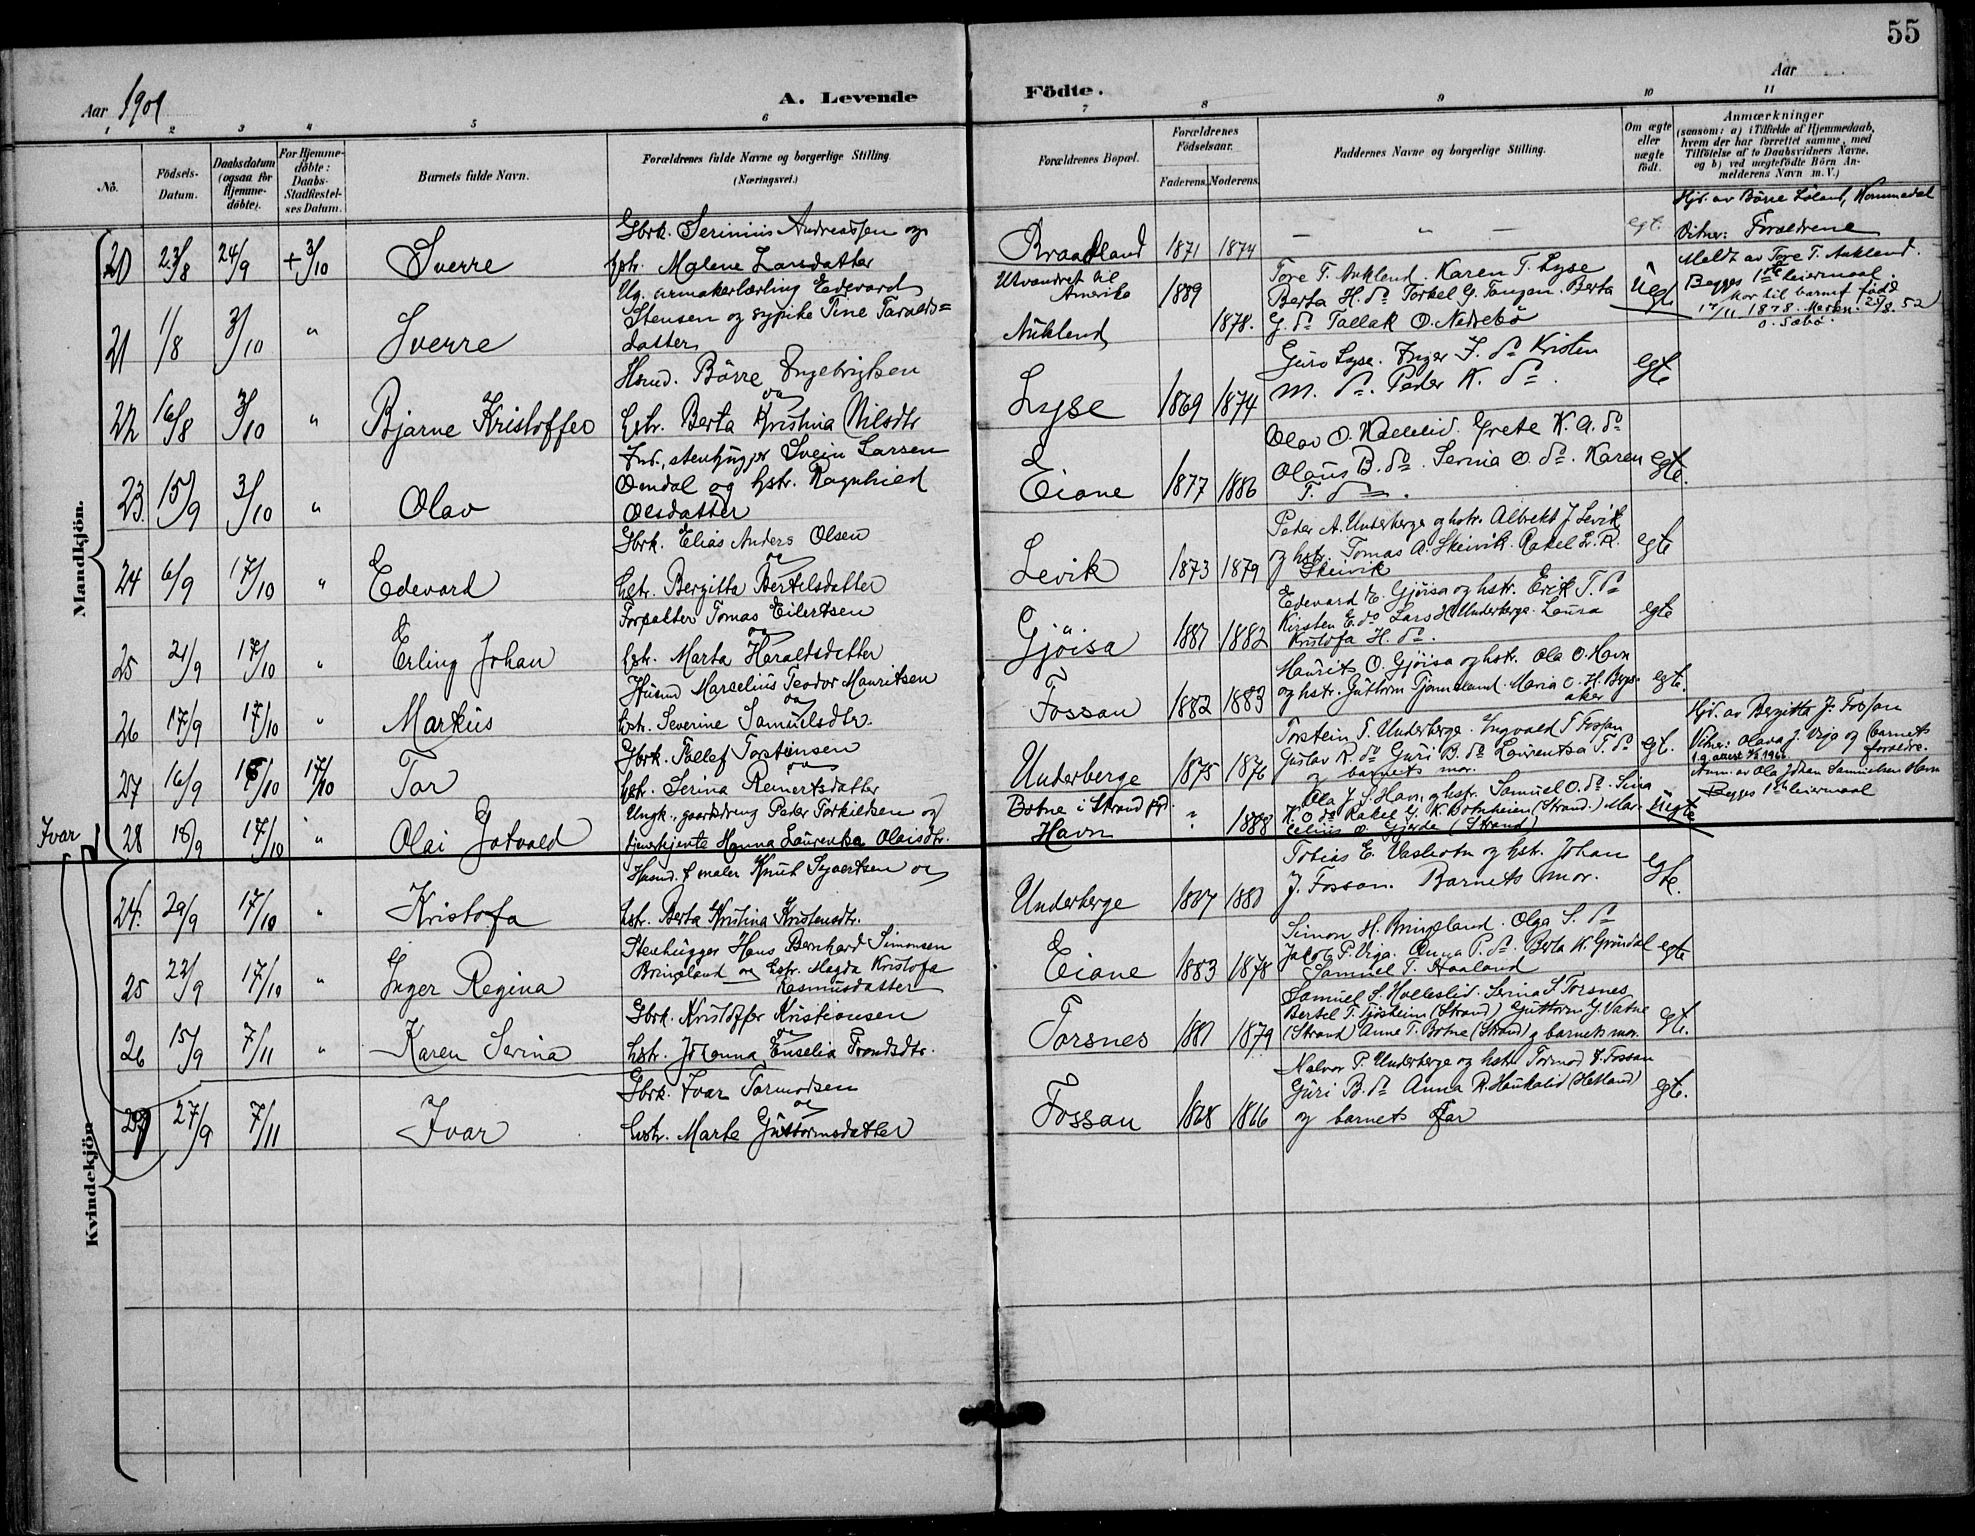 55
Aar 1909
A. Levende Födte.
Aar
1 2 3 4 5 6 7 8 9 10 11
No.
Födsels-Datum.
Daabsdatum (ogsaa for Hjemme-döbte).
For Hjemme-döbte: Daabs-Stadfæstel-ses Datum.
Barnets fulde Navn.
Forældrenes fulde Navne og borgerlige Stilling. (Næringsvei.)
Forældrenes Bopæl.
Forældrenes Födselsaar.
Faderens. Moderens.
Faddernes Navne og borgerlige Stilling.
Om ægte eller uægte födt.
Anmærkninger
(saasom: a) i Tilfælde af Hjemmedaab, hvem der har forrettet samme, med Tilföielse af to Daabsvidners Navne, og b) ved uægtefödte Börn Anmelderens Navn m. V.)
Mandkjön.
20 23/8 24/9 + 3/10 Sverre
Gbrk. Serinius Andreassen og
hstr. Malene Larsdatter
Braadland 1871 1874 — " — egt.
Hjd. av Börre Löland, Kommedal
Vitner: Forældrene
21 1/8 3/10 " Sverre
Ug. urmakerlærling Edevard
Stensen og sypike Tine Taralds=
datter
Utvandret til
Amerika 1889
Aukland 1878.
Tore T. Aukland. Karen T. Lyse
Berta H. do Torkel G. Tangen. Berta
G. do Tallak O. Nedrebö
Uegt.
Meldt av Tore T. Aukland.
Begges 1ste leiermaal.
Mor til barnet född
17/11 1878.
22 16/8 3/10 " Bjarne Kristoffer
Hsmd. Börre Ingebrigtsen
og
hstr. Berta Kristina Nilsdtr
Lyse 1869 1874
Guro Lyse. Inger J. do Kristen
M. do. Peder K. do.
egte
23. 15/9 3/10 " Olav
Ind., stenhugger Svein Larsen
Omdal og hstr. Ragnhild
Olsdatter
Eiane 1877 1886
Olav O. Kallelid. Grete K. A. do
Olaus B. do. Serina O. do. Karen
T. do.
egte.
24 6/9 17/10 " Edevard
Gbrk. Elias Anders Olsen
og
hstr. Bergitta Bertelsdatter
Levik 1873 1879
Peder A. Underberge og hstr. Albrekt J. Levik
og hstr. Tomas A. Skeivik. Rakel L. R.
Skeivik
egte
25 21/9 17/10 " Erling Johan
Forpakter Tomas Eilertsen
og
hstr. Marta Haraldsdatter
Gjöisa 1887 1882
Edevard E. Gjöisa og hstr. Erik T. do
Kirsten E. do Lars H. Underberge. Laura
Kristofa H. do.
egte
26 17/9 17/10 " Markus
Husmd Marselius Teodor Mauritsen
og
hstr. Severine Samuelsdtr.
Fossan 1882 1883
Maurits O. Gjöisa og hstr. Ola O. Havn
og hstr. Guttorm Tjomsland. Maria O. H. Bergs-
aker
egte.
27 16/9 16/10 17/10 Tor
Gbrk. Tallef Torstensen
og
hstr. Serina Reinertsdatter
Underberge 1875 1876
Torstein T. Underberge. Ingvald T Fossan
Gustav R. do Guri B. do Laurentsa T. do
og barnets mor.
egt.
Hjd. av Bergitta J. Fossan
Vitner: Olava J. Vrja og barnets
forældre.
28 18/9 17/10 " Olai Gotvald
Ungk., gaardsdreng Peder Torkielsen og
tjenestjente Hanna Laurentsa Olaisdtr.
Botne i Strand pgd
Havn ? 1888
Ola J. S. Havn, og hstr. Samuel O. do. Sina
K. O. do Rakel G. K. Botnheim (Strand.) Mar-
selius O. Gjerde (Strand)
uegte
Anm. av Ola Johan Samuelsen Havn
Begges 1ste leiermaal
Ivar
Kvindekjön
24. 29/9 17/10 " Kristofa
Husmd. & maler Knut Sjoertsen og
hstr. Berta Kristina Kristensdtr.
Underberge 1887 1880
Tobias E. Vasbotn og hstr. Johan
J. Fossan. Barnets mor.
egte.
25 22/9 17/10 " Inger Regina
Stenhugger Hans Bernhard Simonsen
Bringeland og hstr. Magda Kristofa
Rasmusdatter
Eiane 1883 1878
Simon H. Bringeland. Olga S. do
Jakob P. Vrja. Anna P. do. Berta K. Gröndal
Samuel T. Haaland
egte
26 15/9 7/11 " Karen Serina
Gbrk. Kristoffer Kristiansen
og
hstr. Johanna Enselia Trondsdtr.
Torsnes 1881 1879
Samuel S. Holleslid. Serina S Torsnes
Bertel T. Tjösheim (Strand) Guttorm G. Vatne
(Strand) Anne T. Botne (Strand) og barnets mor.
egte.
29 27/9 7/11 Ivar
Gbrk. Ivar Tormodsen
og
hstr. Marta Guttormsdatter
Fossan 1868 1866
Halvor P. Underberge og hstr Tormod I. Fossan
Guri B. do Anna R. Haukalid (Hetland)
og barnets far
egte.